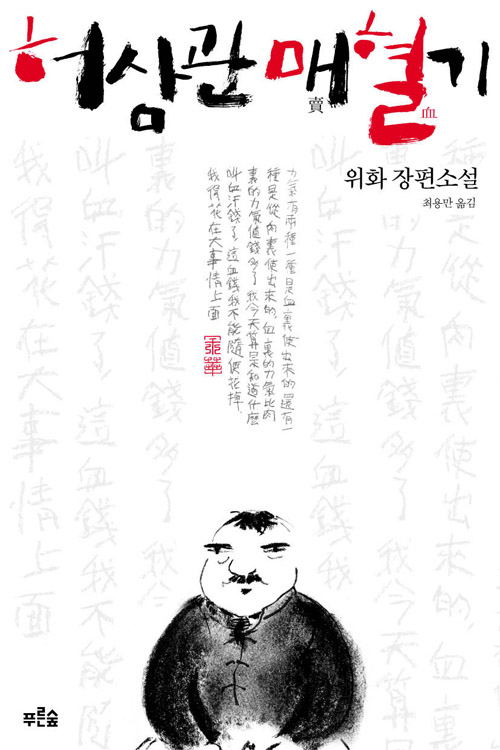 허삼관 매혈기
賣 血
위화 장편소설
최용만 옮김
力氣有兩種一種是血裏使出來的還有一
種是從肉裏使出來的,血裏的力氣比肉
裏的力氣值錢多了 我今天算是知道什麼
叫血汗錢了,這血錢我不能隨便花掉,
我得花在大事情上面
余華
種是從肉裏使出來的,血裏
的力氣值錢多了 我今天算
叫血汗錢了 這血錢我
裏的力氣值錢多了 我今
叫血汗錢了 這血錢我不能隨
我得花在大事情上面
푸른숲